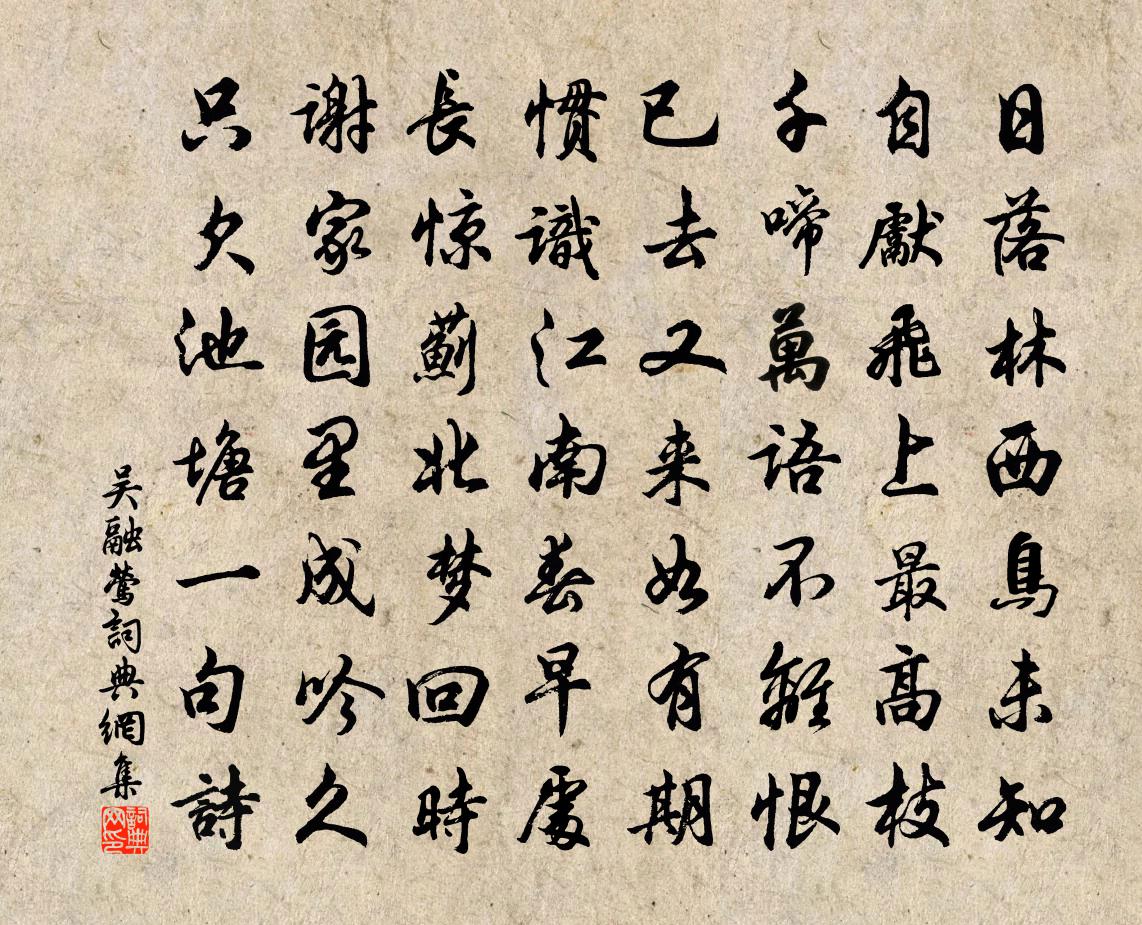 日落林西鳥未知
自獻飛上最高枝
千啼萬語不離恨
已去又来如有期
慣識江南春早處
長惊薊北梦回時
謝家园里成吟久
只欠池塘一句詩
吴融鶯詞典網集
詞典網印